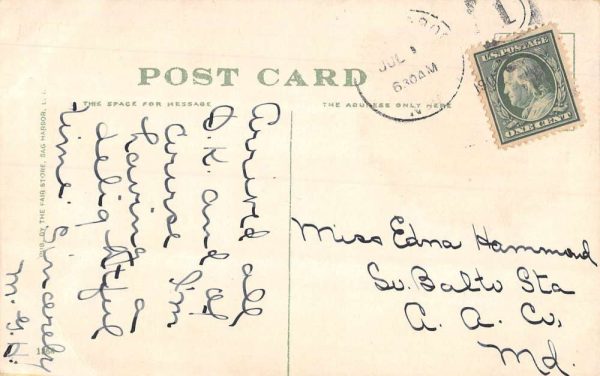 POST CARD
THE SPACE FOR MESSAGE
THE ADDRESS ONLY HERE
JUL
630AM
N
1
U.S. POSTAGE
ONE CENT
Arrived all
O.K. and of
course I'm
having a
delightful
time. Sincerely
M. G. H.
Miss Edna Hammond
So. Balto Sta
A. A. Co,
Md.
PUB. BY THE FAIR STORE, SAG HARBOR, L. I.